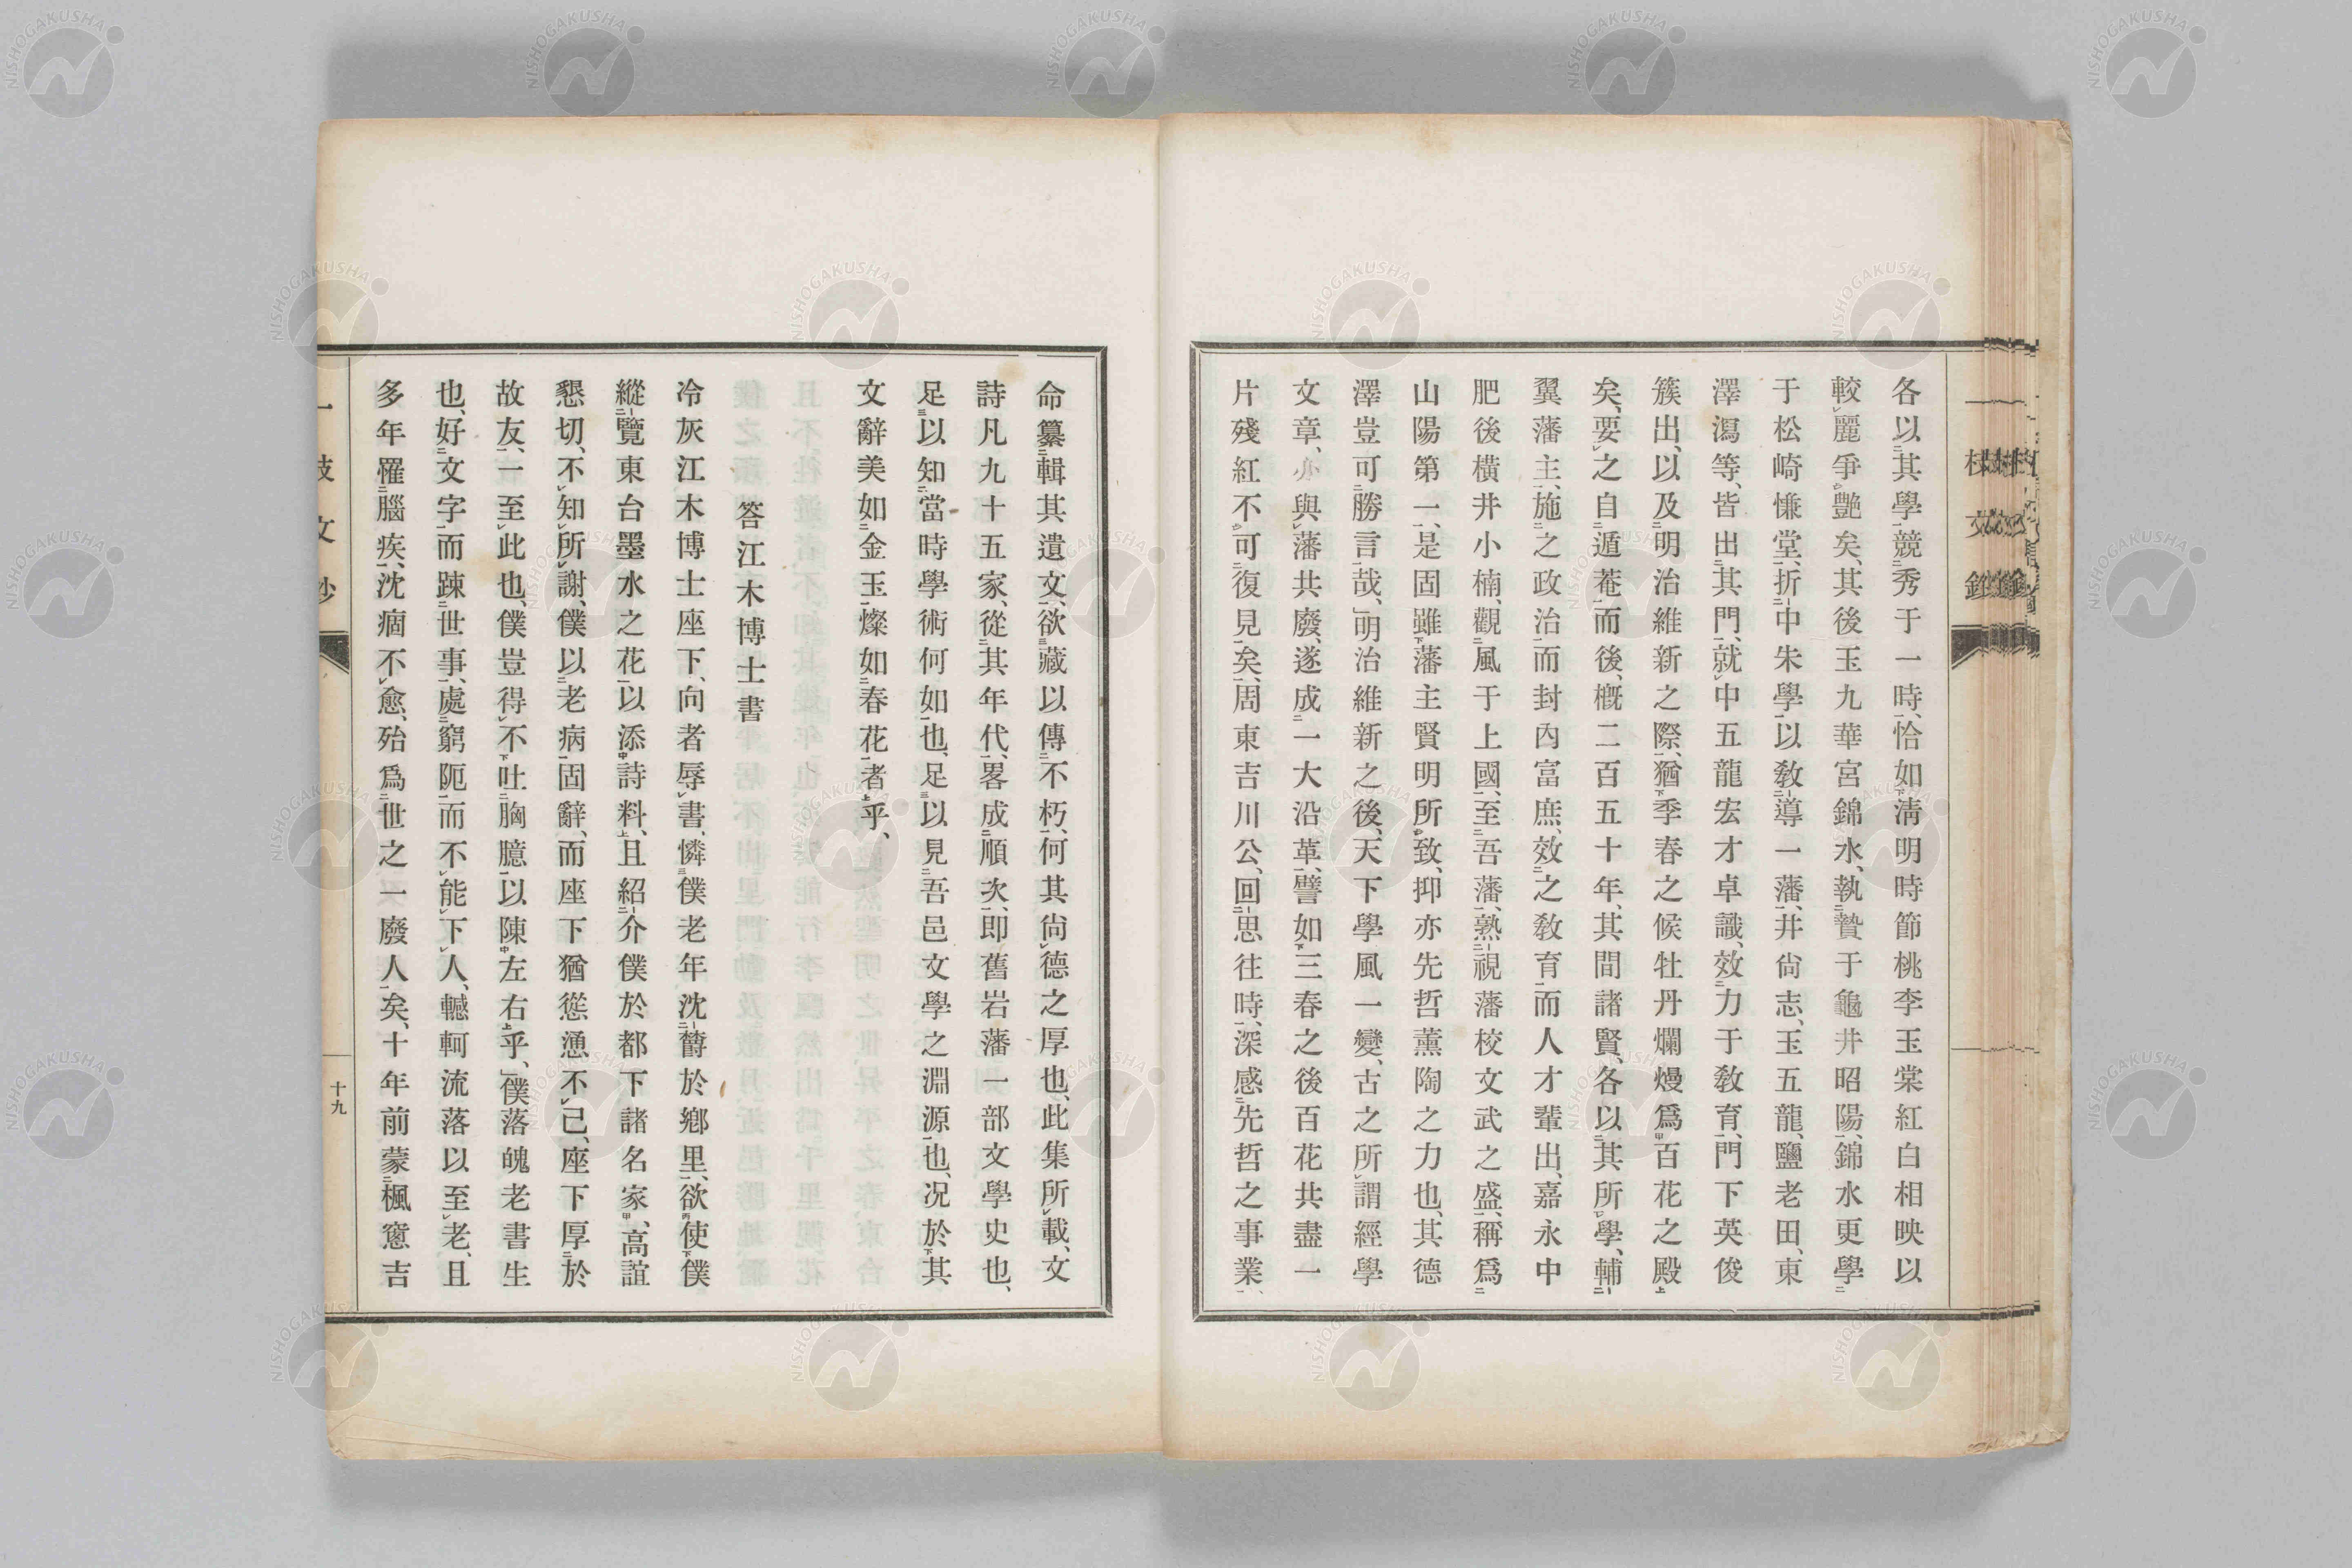 各以其學、競秀于一時、恰如淸明時節桃李玉棠紅白相映以
較麗爭艷矣、其後玉九華宮錦水、執贄于龜井昭陽、錦水更學
于松崎慊堂、折中朱學、以敎導一藩、井尙志、玉五龍、鹽老田、東
澤瀉等、皆出其門、就中五龍宏才卓識、效力于敎育、門下英俊
簇出、以及明治維新之際、猶季春之候牡丹爛熳爲百花之殿
矣、要之自遁菴而後、槪二百五十年、其間諸賢、各以其所學、輔
翼藩主、施之政治、而封內富庶、效之敎育、而人才輩出、嘉永中
肥後橫井小楠、觀風于上國、至吾藩、熟視藩校文武之盛、稱爲
山陽第一、是固雖藩主賢明所致、抑亦先哲薰陶之力也、其德
澤豈可勝言哉、明治維新之後、天下學風一變、古之所謂經學
文章、亦與藩共廢、遂成一大沿革、譬如三春之後百花共盡一
片殘紅不可復見矣、周東吉川公、回思往時、深感先哲之事業、
命纂輯其遺文、欲藏以傳不朽、何其尙德之厚也、此集所載、文
詩凡九十五家、從其年代、畧成順次、即舊岩藩一部文學史也、
足以知當時學術何如也、足以見吾邑文學之淵源也、况於其
文辭美如金玉燦如春花者乎、
答江木博士書
冷灰江木博士座下、向者辱書、憐僕老年沈欝於鄕里、欲使僕
縱覽東台墨水之花以添詩料、且紹介僕於都下諸名家、高誼
懇切、不知所謝、僕以老病固辭、而座下猶慫慂不已、座下厚於
故友、一至此也、僕豈得不吐胸臆以陳左右乎、僕落魄老書生
也、好文字而踈世事、處窮阨而不能下人、轗軻流落以至老、且
多年罹腦疾、沈痼不愈、殆爲世之一廢人矣、十年前蒙楓窻吉
十九